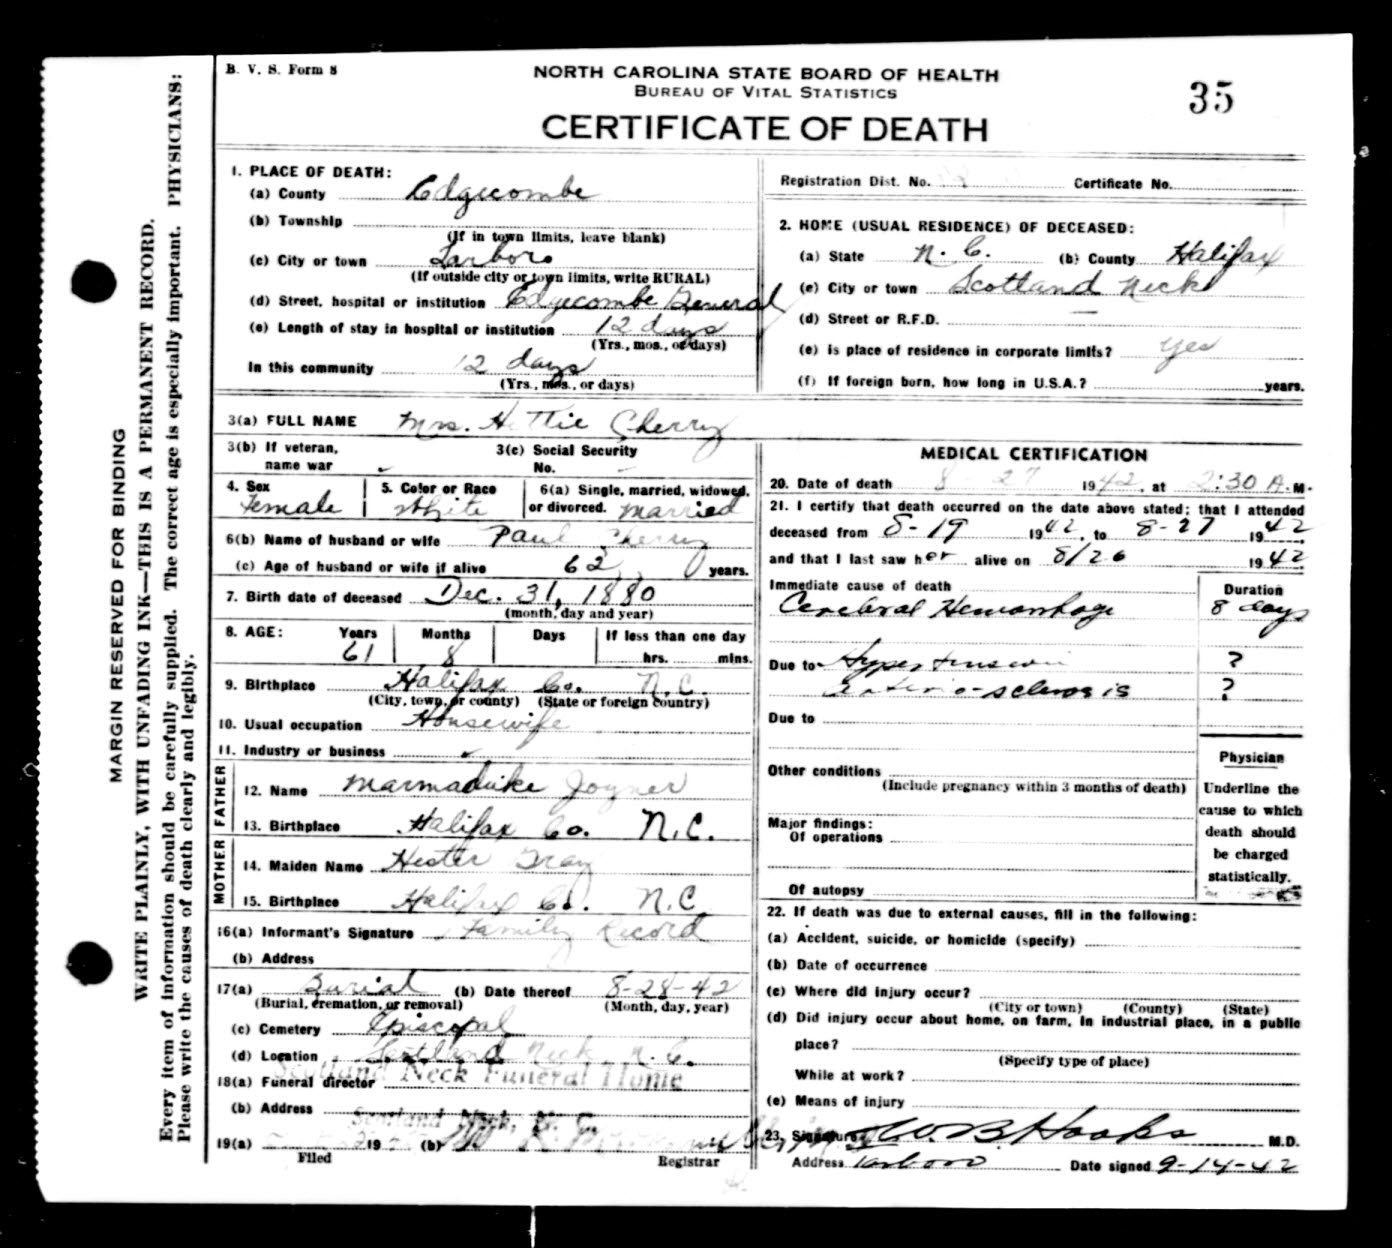 B. V. S. Form 8
NORTH CAROLINA STATE BOARD OF HEALTH
BUREAU OF VITAL STATISTICS
CERTIFICATE OF DEATH
35
MARGIN RESERVED FOR BINDING
WRITE PLAINLY, WITH UNFADING INK—THIS IS A PERMANENT RECORD.
Every item of information should be carefully supplied. The correct age is especially important. PHYSICIANS:
Please write the causes of death clearly and legibly.
1. PLACE OF DEATH:
(a) County Edgecombe
(b) Township
(If in town limits, leave blank)
(c) City or town Tarboro
(If outside city or town limits, write RURAL)
(d) Street, hospital or institution Edgecombe General
(e) Length of stay in hospital or institution 12 days
(Yrs., mos., or days)
In this community 12 days
(Yrs., mos., or days)
Registration Dist. No. Certificate No.
2. HOME (USUAL RESIDENCE) OF DECEASED:
(a) State N. C. (b) County Halifax
(c) City or town Scotland Neck
(d) Street or R.F.D. —
(e) Is place of residence in corporate limits? yes
(f) If foreign born, how long in U.S.A.? years.
3(a) FULL NAME Mrs. Hettie Cherry
3(b) If veteran, name war
3(c) Social Security No.
4. Sex Female
5. Color or Race White
6(a) Single, married, widowed, or divorced. married
6(b) Name of husband or wife Paul Cherry
(c) Age of husband or wife if alive 62 years.
7. Birth date of deceased Dec. 31, 1880
(month, day and year)
8. AGE: Years Months Days If less than one day
61 8 hrs. mins.
9. Birthplace Halifax Co. N.C.
(City, town, or county) (State or foreign country)
10. Usual occupation Housewife
11. Industry or business
FATHER
12. Name Marmaduke Joyner
13. Birthplace Halifax Co. N.C.
MOTHER
14. Maiden Name Hester Gray
15. Birthplace Halifax Co. N.C
16(a) Informant's Signature Family Record
(b) Address
17(a) Burial (b) Date thereof 8-28-42
(Burial, cremation, or removal) (Month, day, year)
(c) Cemetery Episcopal
(d) Location Scotland Neck N. C.
18(a) Funeral director Scotland Neck Funeral Home
(b) Address Scotland Neck, N. C.
19(a) 19 (b)
Filed Registrar
MEDICAL CERTIFICATION
20. Date of death 8 - 27 1942, at 2:30 A.M.
21. I certify that death occurred on the date above stated; that I attended
deceased from 8-19 1942, to 8-27 1942
and that I last saw her alive on 8/26 1942
Immediate cause of death Duration
Cerebral Hemorrhage 8 days
Due to Hypertension ?
Arterio-sclerosis ?
Due to
Other conditions
(Include pregnancy within 3 months of death)
Major findings:
Of operations
Of autopsy
Physician
Underline the
cause to which
death should
be charged
statistically.
22. If death was due to external causes, fill in the following:
(a) Accident, suicide, or homicide (specify)
(b) Date of occurrence
(c) Where did injury occur?
(City or town) (County) (State)
(d) Did injury occur about home, on farm, in industrial place, in a public
place?
(Specify type of place)
While at work?
(e) Means of injury
23. Signature W. B. Hooks M.D.
Address Tarboro Date signed 9-14-42